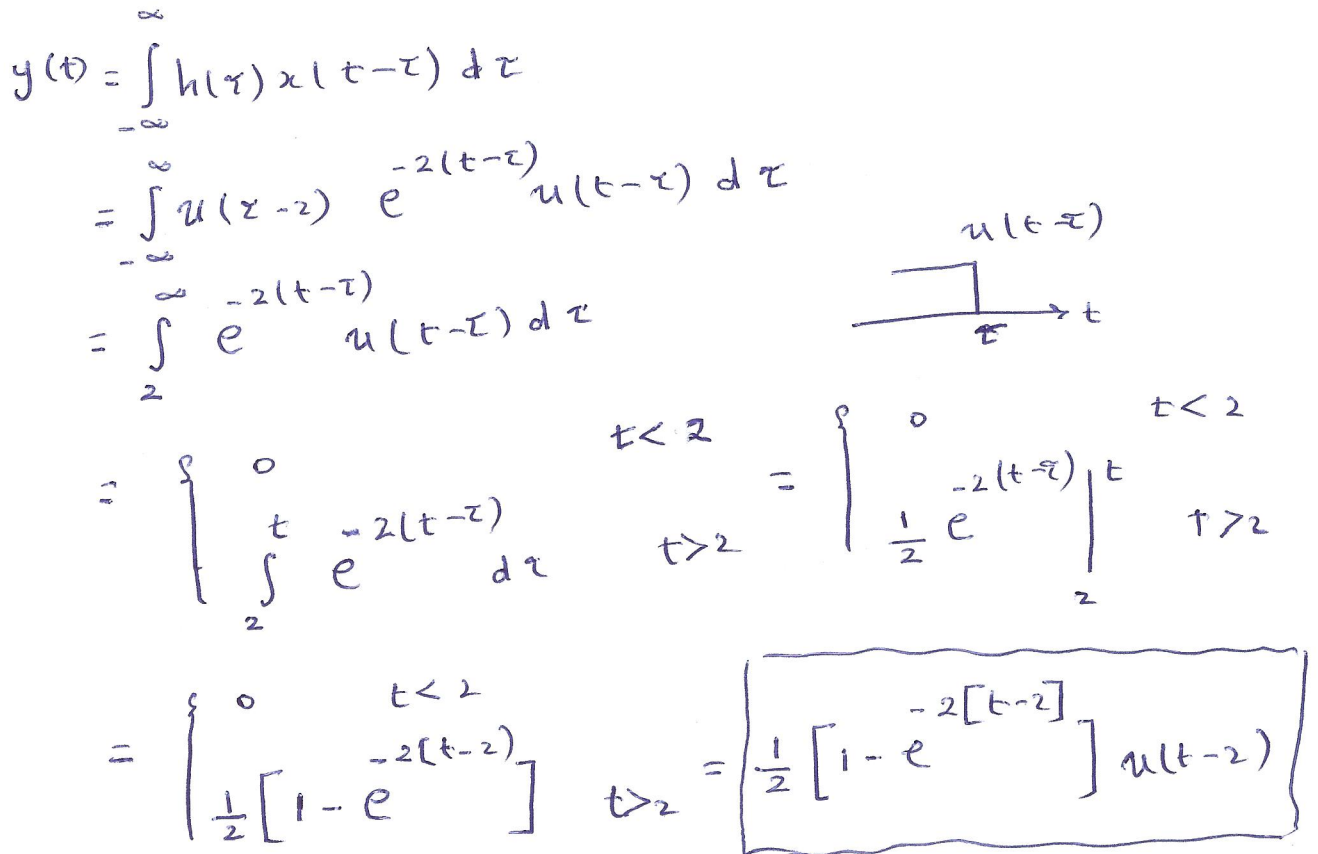 y(t) = ∫_{-∞}^{∞} h(τ) x(t-τ) dτ
= ∫_{-∞}^{∞} u(τ-2) e^{-2(t-τ)} u(t-τ) dτ
u(t-τ)
= ∫_{2}^{∞} e^{-2(t-τ)} u(t-τ) dτ
τ t
= { 0 t<2
∫_{2}^{t} e^{-2(t-τ)} dτ t>2
= { 0 t<2
1/2 e^{-2(t-τ)} |_{2}^{t} t>2
= { 0 t<2
1/2 [1 - e^{-2(t-2)}] t>2
= 1/2 [1 - e^{-2[t-2]}] u(t-2)